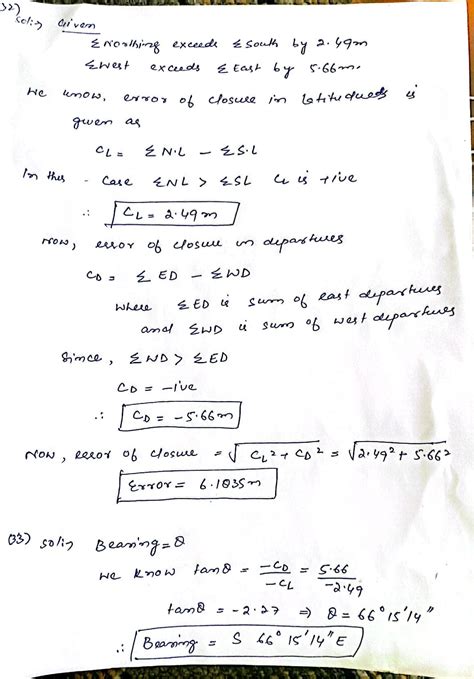 32)
Sol:→ Given
Σ Northing exceeds Σ South by 2.49m
Σ West exceeds Σ East by 5.66m.
We know, error of closure in latitudeds is
given as
CL = Σ N.L - Σ S.L
In this - case ΣNL > ΣSL CL is +ive
∴ CL = 2.49m
Now, error of closure in departures
CD = Σ ED - Σ WD
where Σ ED is sum of east departures
and ΣWD is sum of west departures
Since, ΣWD > ΣED
CD = -ive
∴ CD = -5.66m
Now, error of closure = √CL² + CD² = √2.49² + 5.66²
Error = 6.1835m
33) Sol:→ Bearing = θ
We know tanθ = -CD/-CL = 5.66/-2.49
tanθ = -2.27 ⇒ θ = 66° 15' 14"
∴ Bearing = S 66° 15' 14" E